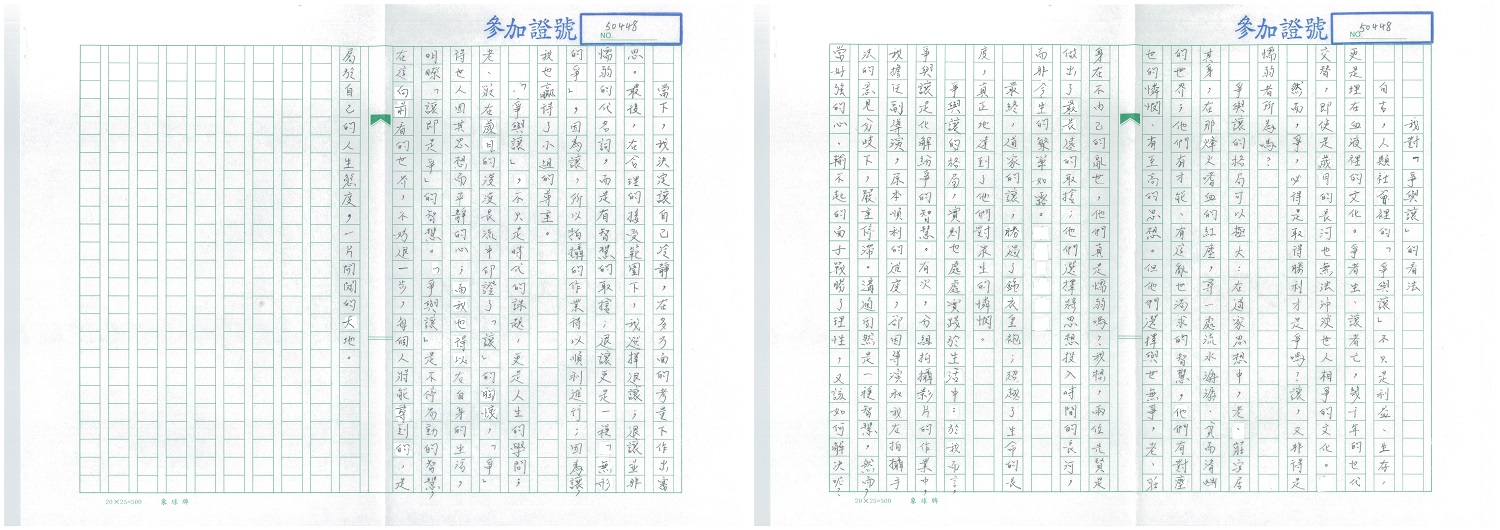 參加證號
NO. 50448
我對「爭與讓」的看法
自古，人類社會裡的「爭與讓」不只是利益、生存，
更是埋在血液裡的文化。爭者生、讓者亡，幾千年的世代
交替，即使是歲月的長河也無法沖淡世人相爭的文化。
然而，爭，必得是取得勝利才是爭嗎？讓，又非得是
懦弱者所為嗎？
爭與讓的格局可以極大：在道家思想中，老、莊字居
其身，在那烽火嗜血的紅塵，尋一處流水潺潺、而清幽
的世界；他們有才能、有定亂世的智慧，他們有對塵
世的憐憫、有至高的思想。但他們選擇與世無爭，老、莊
身在不由己的亂世，他們真是懦弱嗎？我想，兩位先賢是
做出了最長遠的取捨；他們選擇將思想投入時間的長河，
而非今生的繁華如露。
最終，道家的讓，勝過了錦衣皇袍；超越了生命的長
度，真正地達到了他們對眾生的憐憫。
爭與讓的格局，實則也處處實踐於生活中：於我而言，
爭與讓是化解紛爭的智慧。有次，分組拍攝影片的作業中，
我擔任副導演，原本順利的進度，卻因導演和我在拍攝手
法的意見分歧下，嚴重停滯。溝通固然是一種智慧，然而，
當好強的心、輸不起的面子戰勝了理性，又該如何解決呢？
20×25=500 象球牌
參加證號
NO. 50448
當下，我決定讓自己冷靜，在多方面的考量下作出審
思。最後，在合理的接受範圍下，我選擇退讓；退讓並非
懦弱的代名詞，而是有智慧的取捨；退讓更是一種「無形
的爭」，因為讓，所以拍攝的作業得以順利進行；因為讓，
我也贏得了小組的尊重。
「爭與讓」，不只是時代的課題，更是人生的學問；
老、莊在歲月的漫漫長流中印證了「讓」的胸懷，「爭」
得世人因其思想而平靜的心；而我也得以在自身的生活，
明瞭「讓即是爭」的智慧。「爭與讓」是不待而勤的智慧，
在這向前看的世界，不妨退一步，每個人將能尋到的，是
屬於自己的人生態度，一片開闊的大地。
20×25=500 象球牌